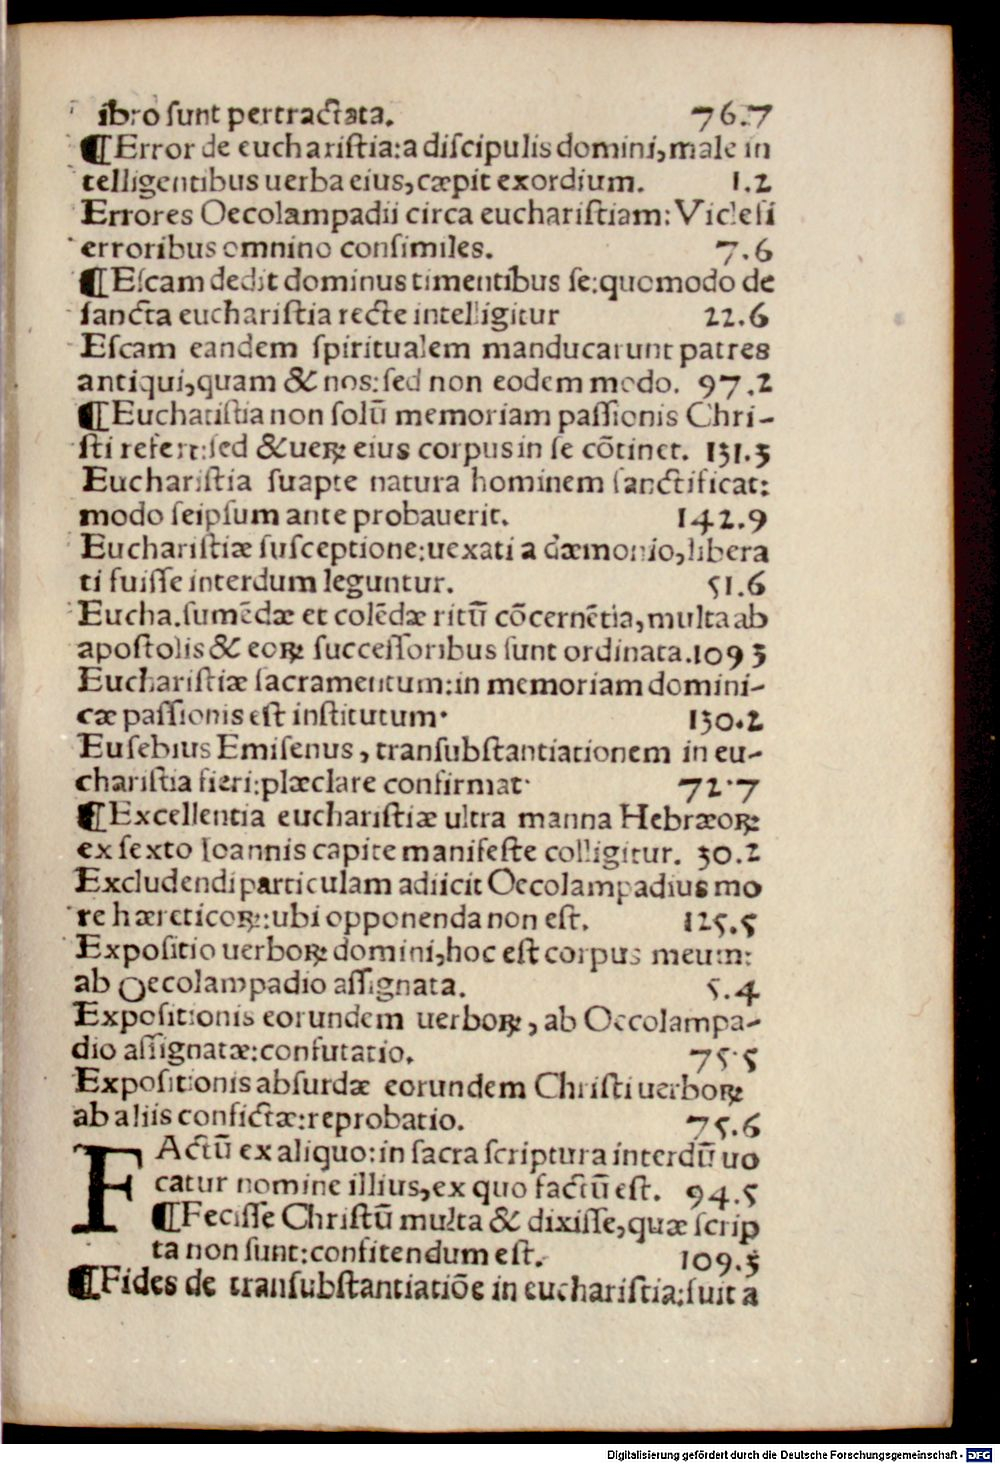 ibro sunt pertractata. 76.7
¶Error de euchariſtia:a diſcipulis domini,male in
telligentibus uerba eius,cæpit exordium. 1.2
Errores Oecolampadii circa euchariſtiam: Viclefi
erroribus omnino conſimiles. 7.6
¶Eſcam dedit dominus timentibus ſe:quomodo de
ſancta euchariſtia recte intelligitur 22.6
Eſcam eandem ſpiritualem manducarunt patres
antiqui,quam & nos:ſed non eodem modo. 97.2
¶Euchariſtia non ſolū memoriam paſſionis Chri-
ſti refert:ſed & ueꝝ eius corpus in ſe cōtinet. 131.3
Euchariſtia ſuapte natura hominem ſanctificat:
modo ſeipſum ante probauerit. 142.9
Euchariſtiæ ſuſceptione:uexati a dæmonio,libera
ti fuiſſe interdum leguntur. 51.6
Eucha.ſumēdæ et colēdæ ritū cōcernētia,multa ab
apoſtolis & eoꝝ ſucceſſoribus ſunt ordinata.109 3
Euchariſtiæ ſacramentum:in memoriam domini-
cæ paſſionis eſt inſtitutum· 130.2
Euſebius Emiſenus, tranſubſtantiationem in eu-
chariſtia fieri:plæclare confirmat· 72·7
¶Excellentia euchariſtiæ ultra manna Hebræoꝝ
ex ſexto Ioannis capite manifeſte colligitur. 30.2
Excludendi particulam adiicit Oecolampadius mo
re hæreticoꝝ:ubi opponenda non eſt. 125.5
Expoſitio uerboꝝ domini,hoc eſt corpus meum:
ab Oecolampadio aſſignata. 5.4
Expoſitionis eorundem uerboꝝ, ab Oecolampa-
dio aſſignatæ:confutatio. 75·5
Expoſitionis abſurdæ eorundem Chriſti uerboꝝ
ab aliis confictæ:reprobatio. 75.6
FActū ex aliquo:in ſacra ſcriptura interdū uo
catur nomine illius,ex quo factū eſt. 94.5
¶Feciſſe Chriſtū multa & dixiſſe,quæ ſcrip
ta non ſunt:confitendum eſt. 109.3
¶Fides de tranſubſtantiatiōe in euchariſtia:fuit a
Digitalisierung gefördert durch die Deutsche Forschungsgemeinschaft - DFG